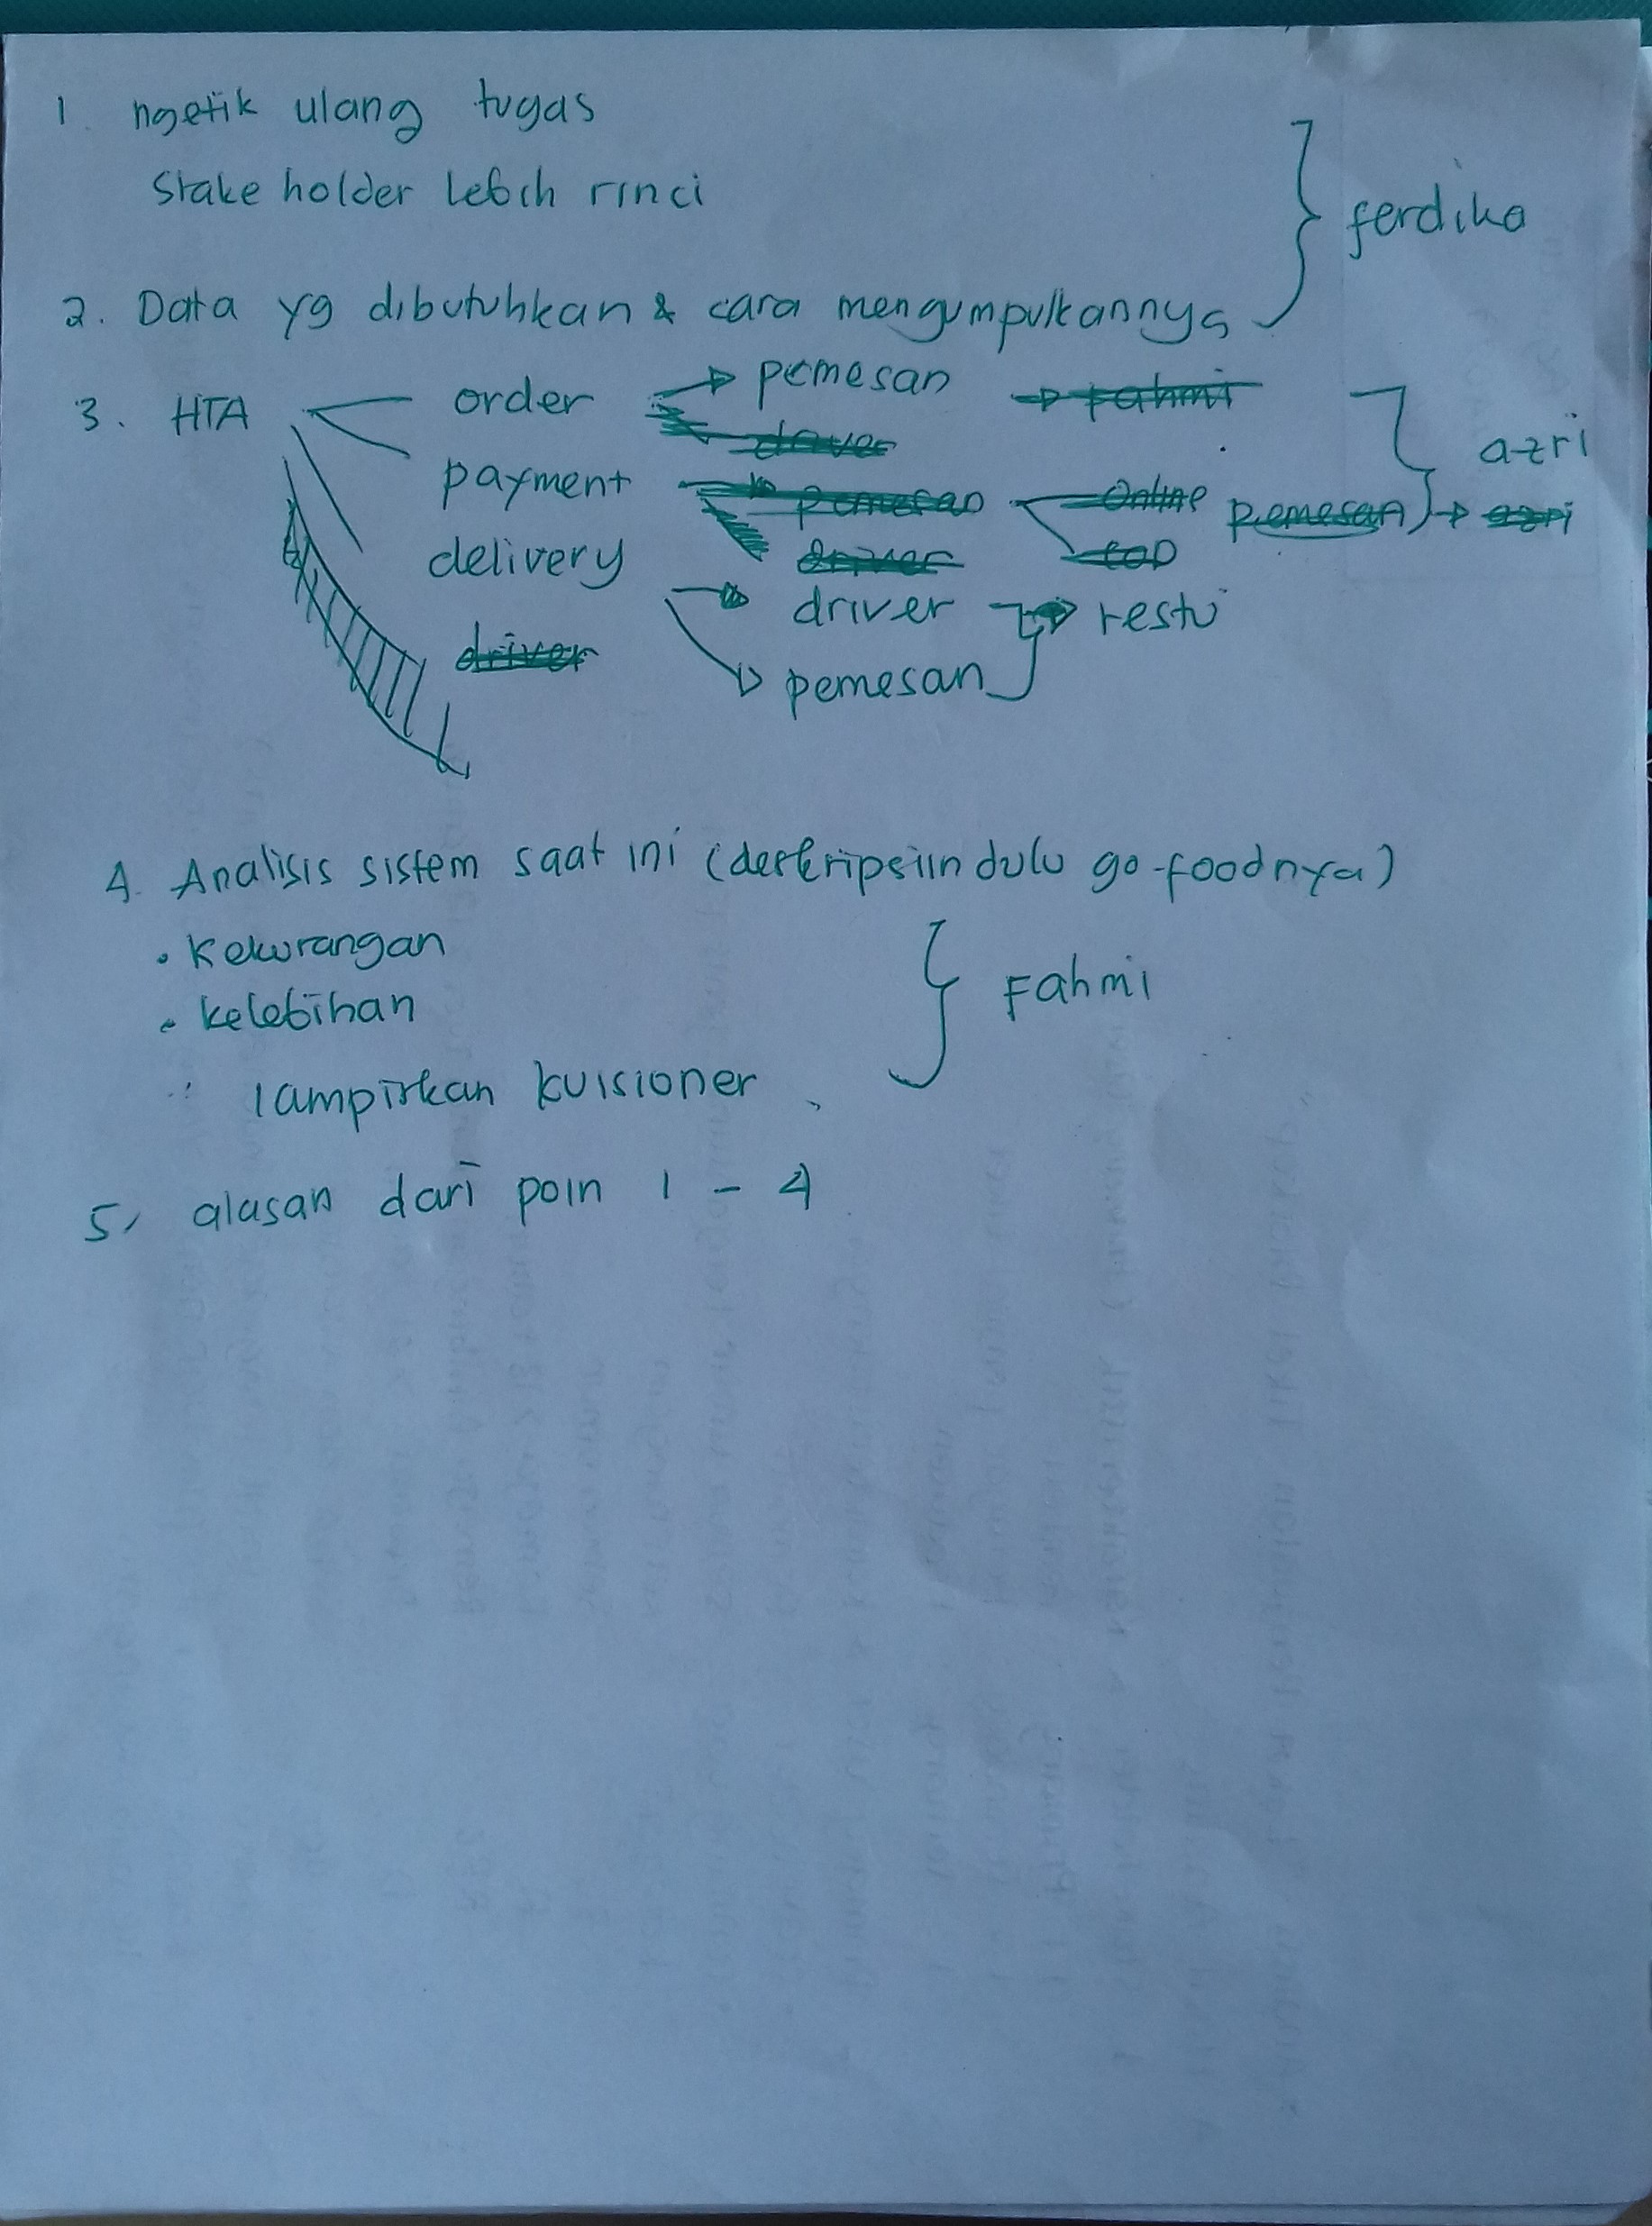 1. ngetik ulang tugas
Stake holder lebih rinci
ferdika
2. Data yg dibutuhkan & cara mengumpulkannya
3. HTA order pemesan fahmi
driver
azri
payment pemesan online pemesan azri
driver COD
delivery driver restu
driver pemesan
4. Analisis sistem saat ini (deskripsiin dulu go-foodnya)
• Kekurangan
• kelebihan
Fahmi
lampirkan kuisioner
5. alasan dari poin 1 - 4